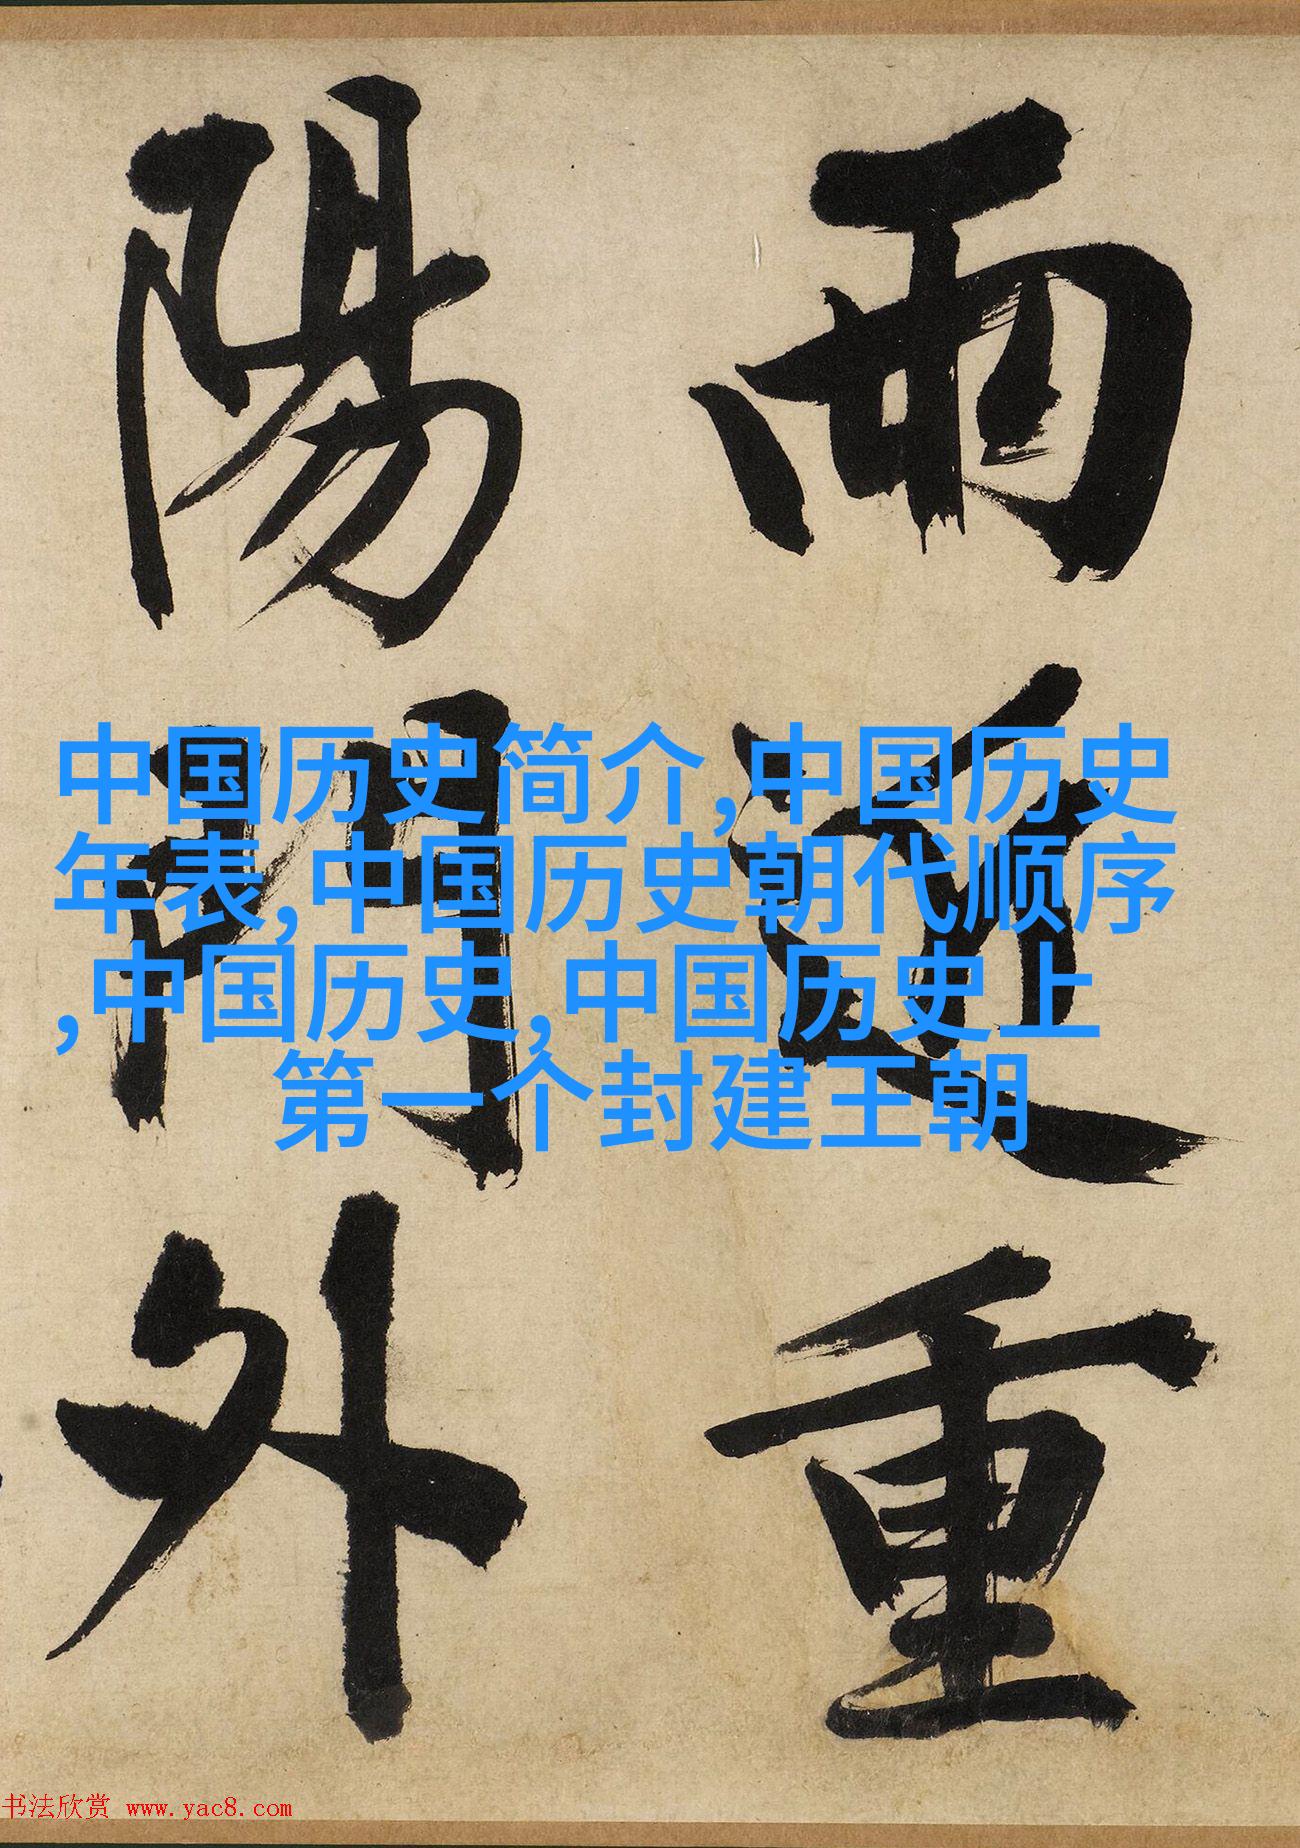 雨近重
陽門外
中国历史简介,中国历史
年表,中国历史朝代顺序
,中国历史,中国历史上
第一个封建王朝
书法欣赏 www.yac8.com